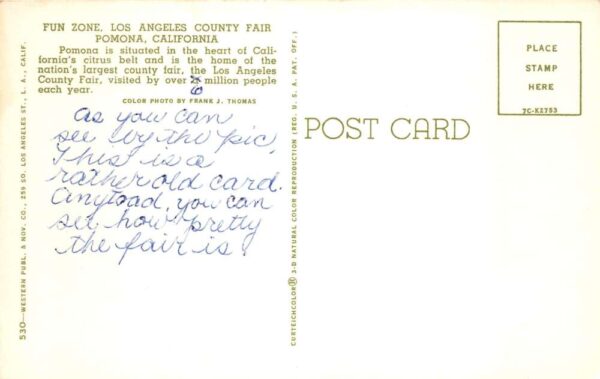 FUN ZONE, LOS ANGELES COUNTY FAIR
POMONA, CALIFORNIA
Pomona is situated in the heart of Cali-
fornia's citrus belt and is the home of the
nation's largest county fair, the Los Angeles
County Fair, visited by over million people
each year.
COLOR PHOTO BY FRANK J. THOMAS
as you can
see by the pic,
This is a
rather old card.
Anytoad, you can
see how pretty
the fair is.
530—WESTERN PUBL. & NOV. CO., 259 SO. LOS ANGELES ST., L. A., CALIF.
CURTEICHCOLOR® 3-D NATURAL COLOR REPRODUCTION (REG. U. S. A. PAT. OFF.)
POST CARD
PLACE
STAMP
HERE
7C-K2753